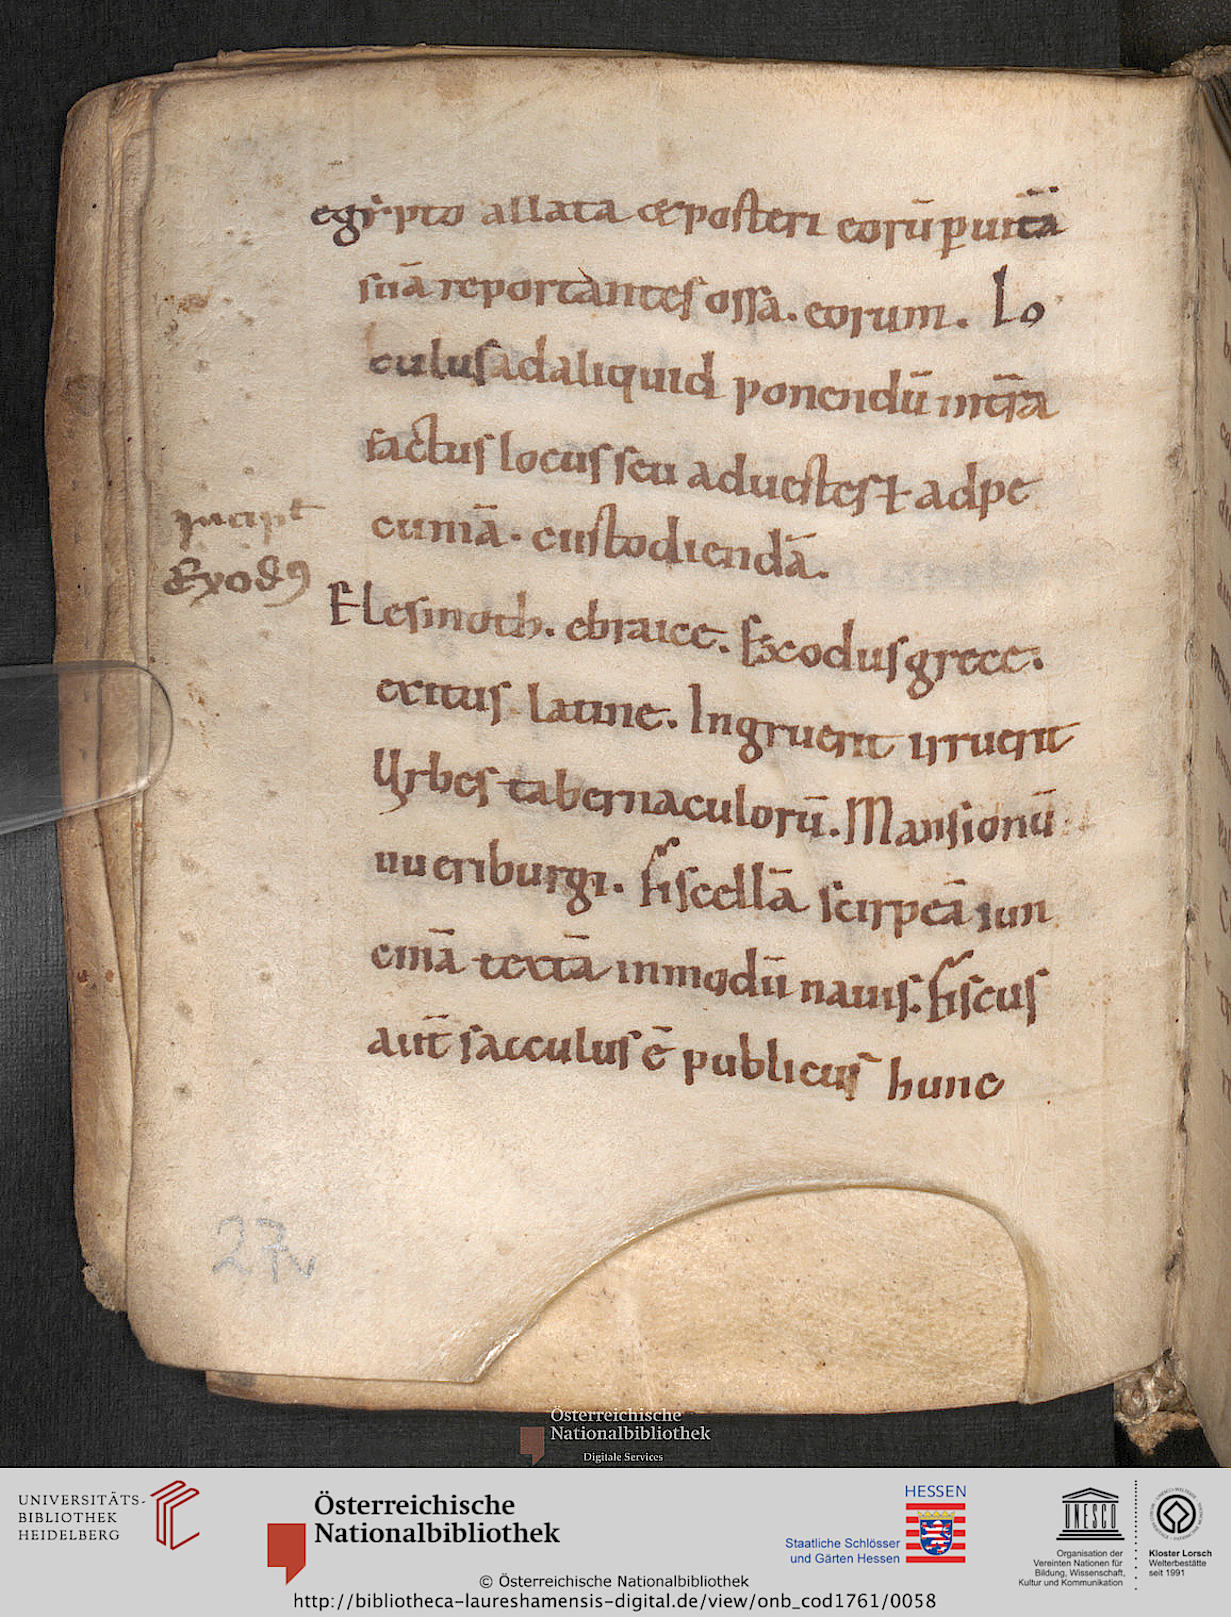 egẏpto allata & posteri eorū p̱ uitā
suā reportantes ossa. eorum. Lo
culus ad aliquid ponendū intra
factus locus seu ad uestes ł ad pe
cuniā. custodiendā.
incipit
Exod9
Elesmoth. ebraice. Exodus grece.
exitus latine. Ingruerit irruerit
Urbes tabernaculorū. Mansionū
ueriburgi. Fiscellā scirpeā iun
ciniā textā in modū nauis. Fiscus
aut̄ sacculus ē publicus hunc
27v
Österreichische
Nationalbibliothek
Digitale Services
UNIVERSITÄTS-
BIBLIOTHEK
HEIDELBERG
Österreichische
Nationalbibliothek
HESSEN
Staatliche Schlösser
und Gärten Hessen
UNESCO
Organisation der
Vereinten Nationen für
Bildung, Wissenschaft,
Kultur und Kommunikation
Kloster Lorsch
Welterbestätte
seit 1991
© Österreichische Nationalbibliothek
http://bibliotheca-laureshamensis-digital.de/view/onb_cod1761/0058